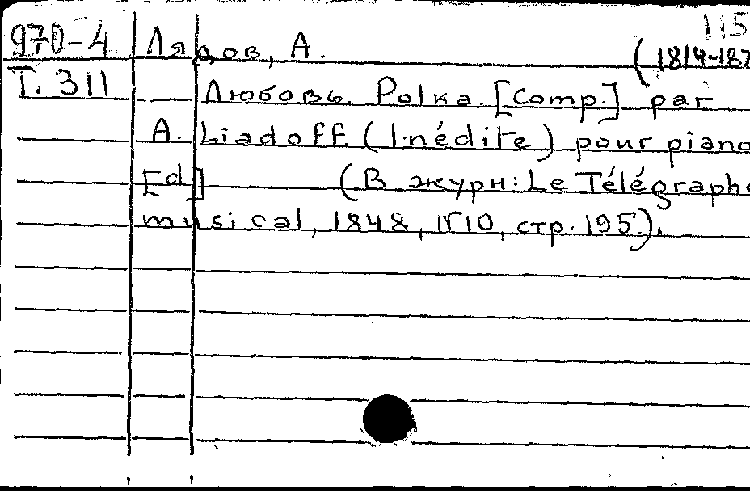 115
970-4 Лядов, А.
(1814-187
Т. 311 Любовь. Polka [Comp.] par
A. Liadoff. (Inédite) pour piano
[Ed] (В журн: Le Télégraphe
musical, 1848, №10, стр. 195.).